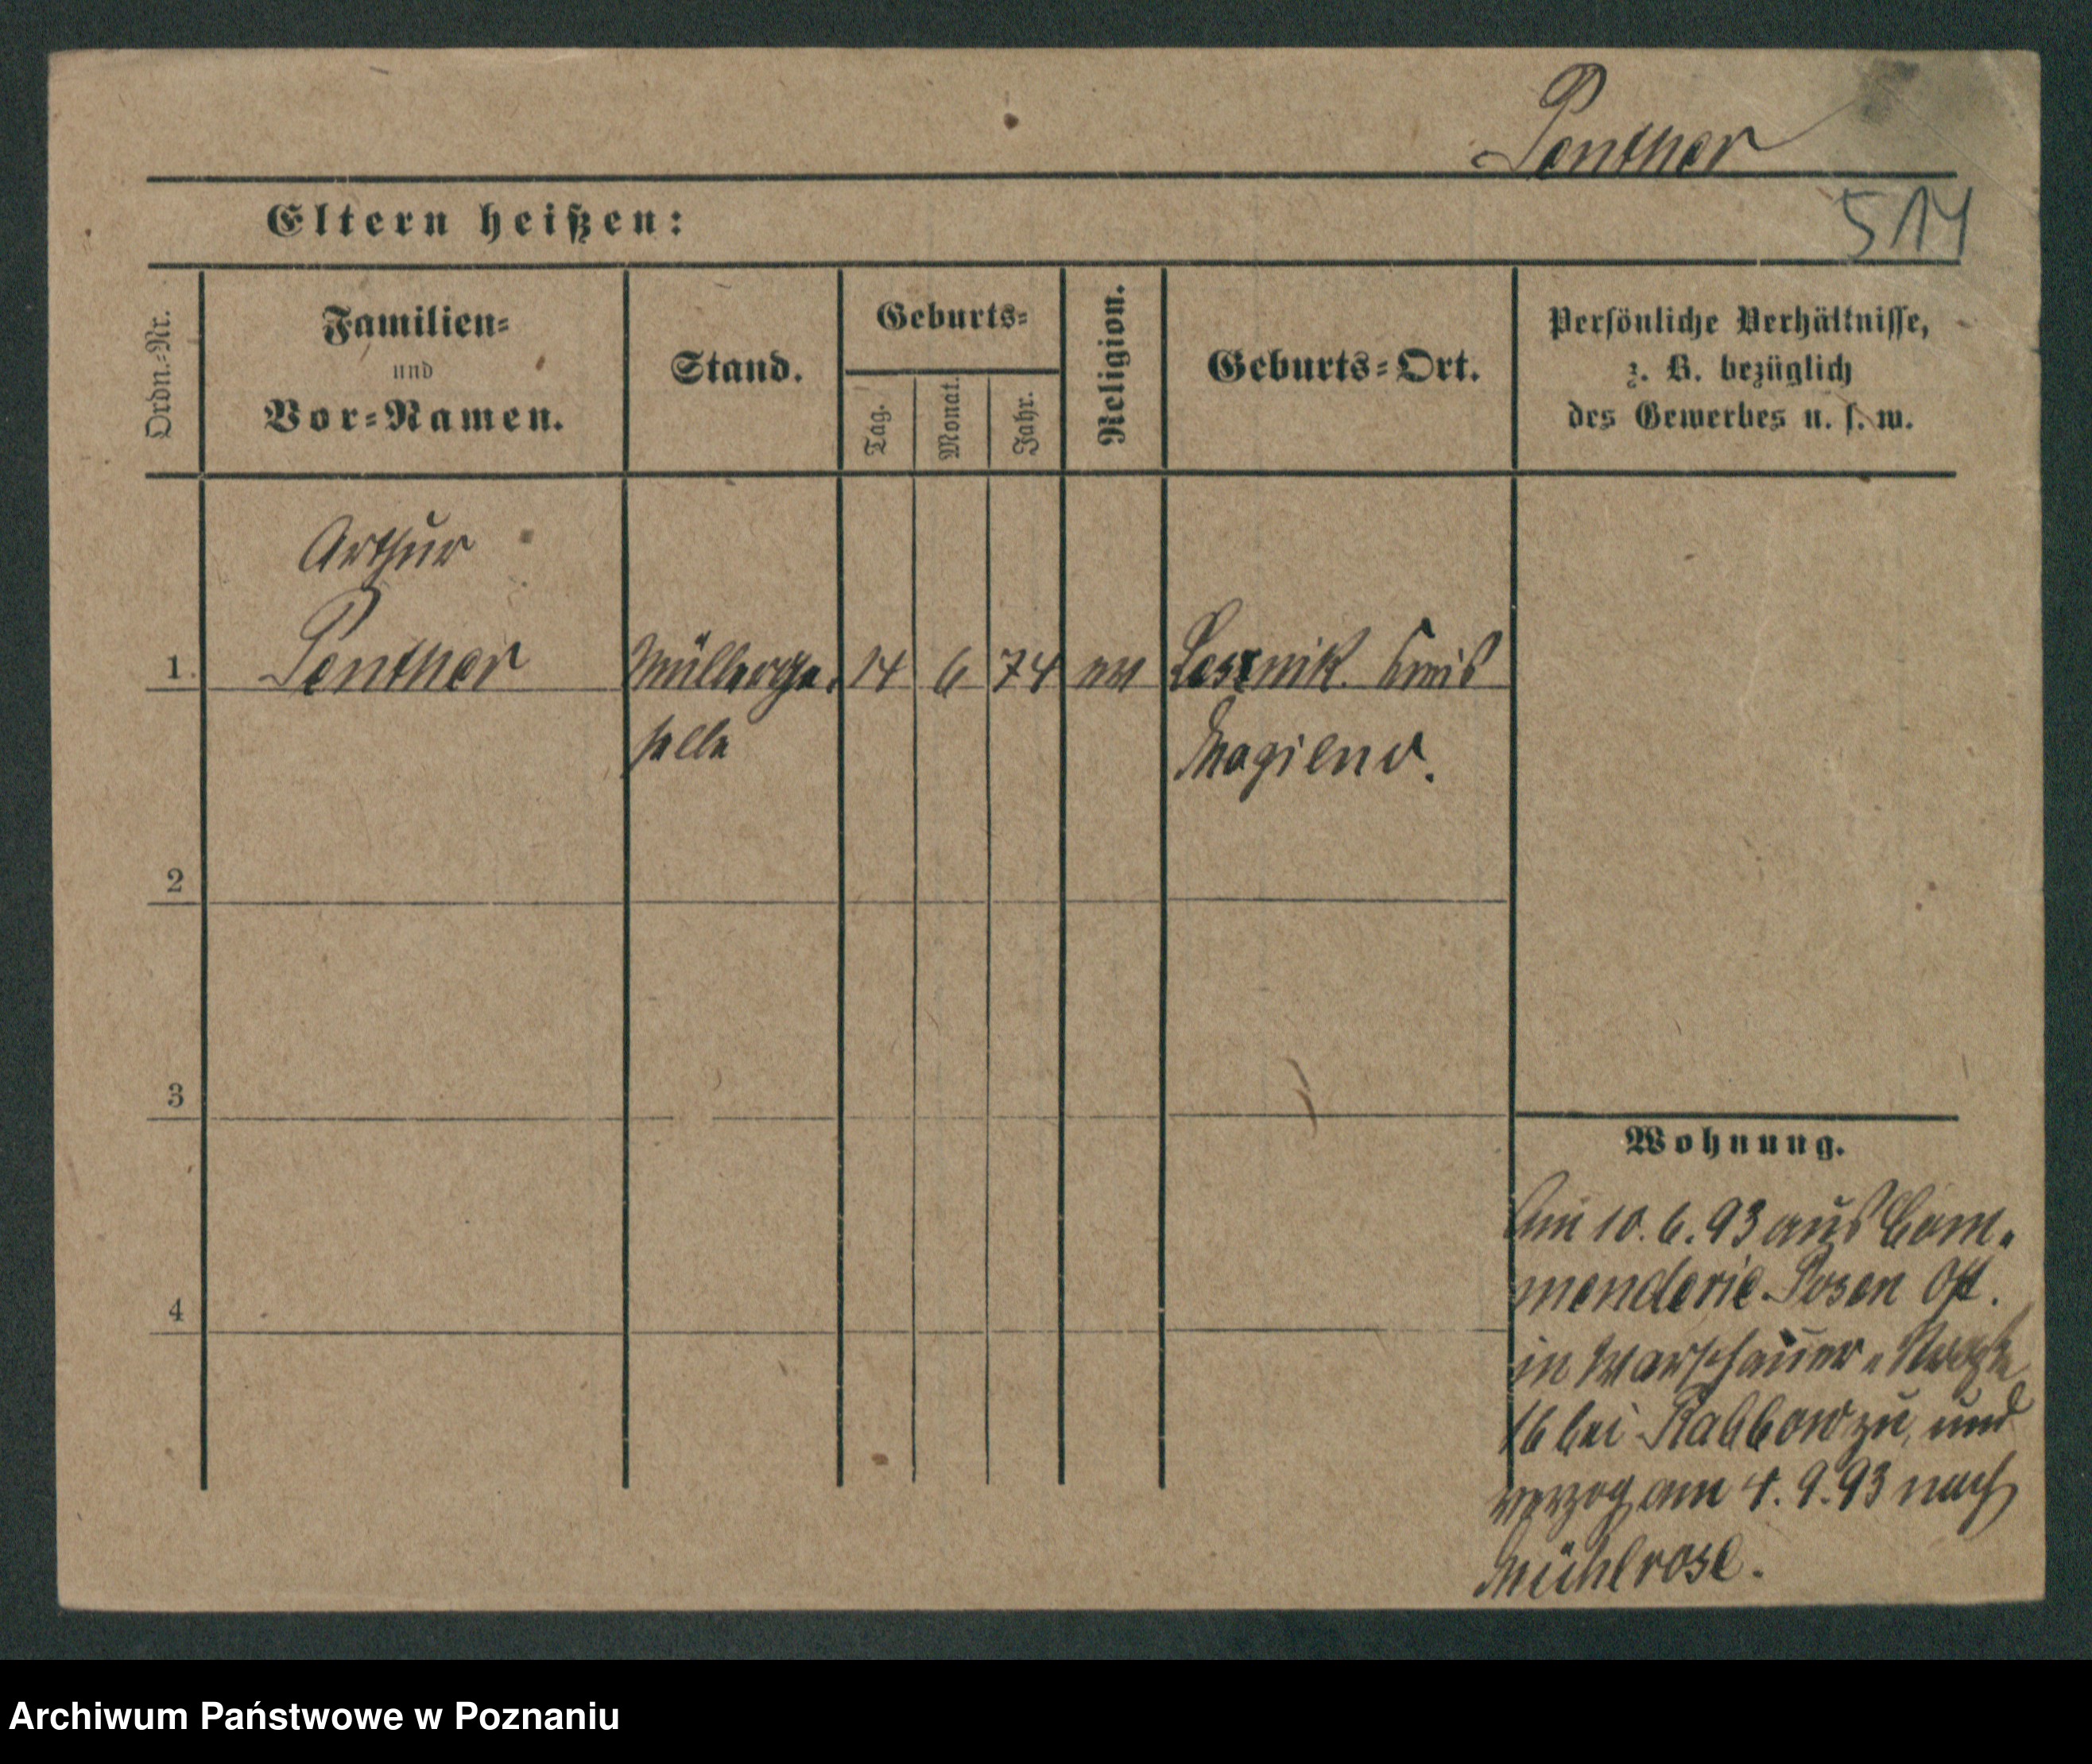 Penther
514
Eltern heißen:
Ordn.=Nr.
Familien=
und
Vor=Namen.
Stand.
Geburts=
Tag.
Monat.
Jahr.
Religion.
Geburts=Ort.
Persönliche Verhältnisse,
z. B. bezüglich
des Gewerbes u. s. w.
Arthur
1. Penther Müllerge- 14 6 74 ev Kreis
selle Mogilno.
2
3
4
Wohnung.
Am 10.6.93 aus Com-
menderie Posen Ost.
in Warschauer
16 bei Rabbow zu, und
verzog am 4.9.93 nach
Mühlrose.
Archiwum Państwowe w Poznaniu